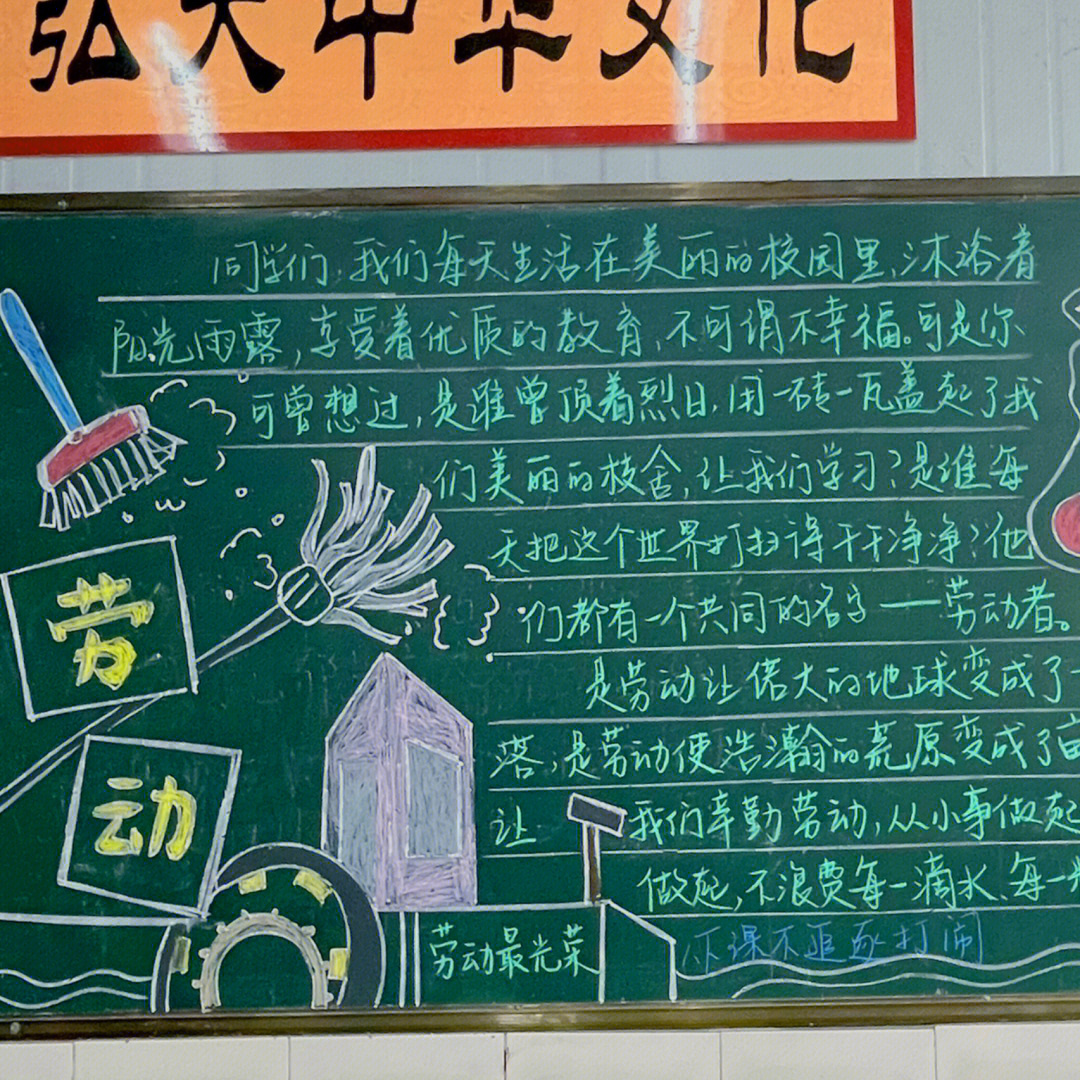 弘大中华文化
同学们,我们每天生活在美丽的校园里,沐浴着
阳光雨露,享受着优质的教育,不可谓不幸福。可是你
可曾想过,是谁曾顶着烈日,用一砖一瓦盖起了我
们美丽的校舍,让我们学习?是谁每
天把这个世界打扫得干干净净?他
们都有一个共同的名字——劳动者。
是劳动让偌大的地球变成了一
塔,是劳动使浩瀚的荒原变成了
让我们辛勤劳动,从小事做起
做起,不浪费每一滴水、每一
劳
动
劳动最光荣
下课不追逐打闹